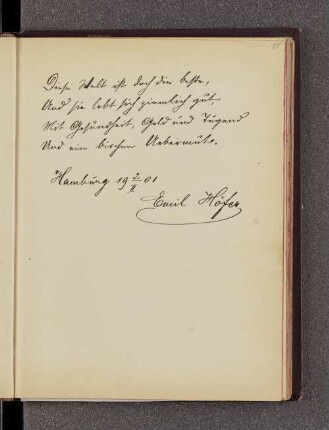 Diese Welt ist doch die beste,
Und sie lebt sich ziemlich gut,
Mit Gesundheit, Geld und Tugend
Und ein bischen Uebermuth.
Hamburg 19 2/II 01
Emil Höfer